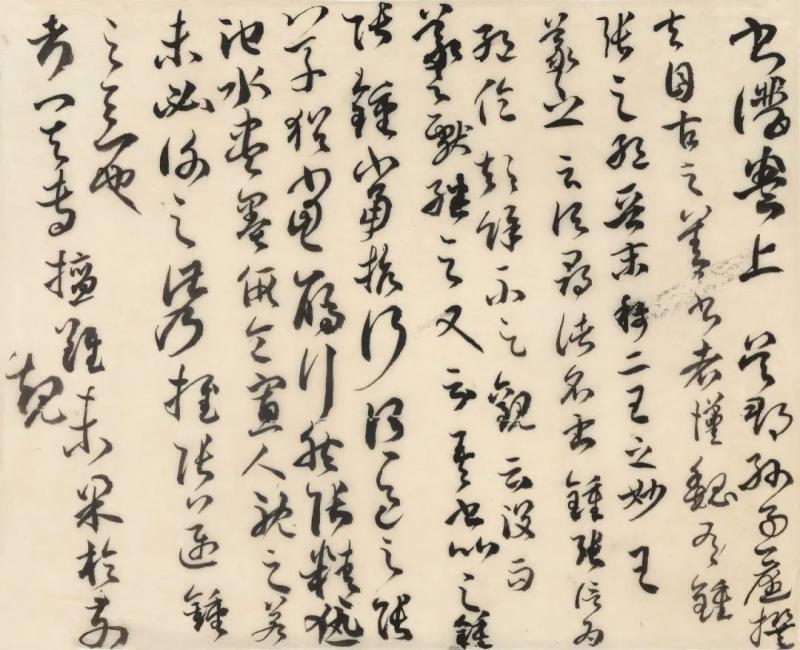 書譜卷上 吳郡孫過庭撰
夫自古之善書者漢魏有鍾
張之絕晉末稱二王之妙王
羲之云頃尋諸名書鍾張信為
絕倫其餘不足觀云沒而
羲獻繼之又云吾書比之鍾
張鍾當抗行或謂過之張
草猶當雁行然張精熟
池水盡墨假令寡人耽之若
未必謝之此乃推張邁鍾
之意也
考其專擅雖未果於前
規